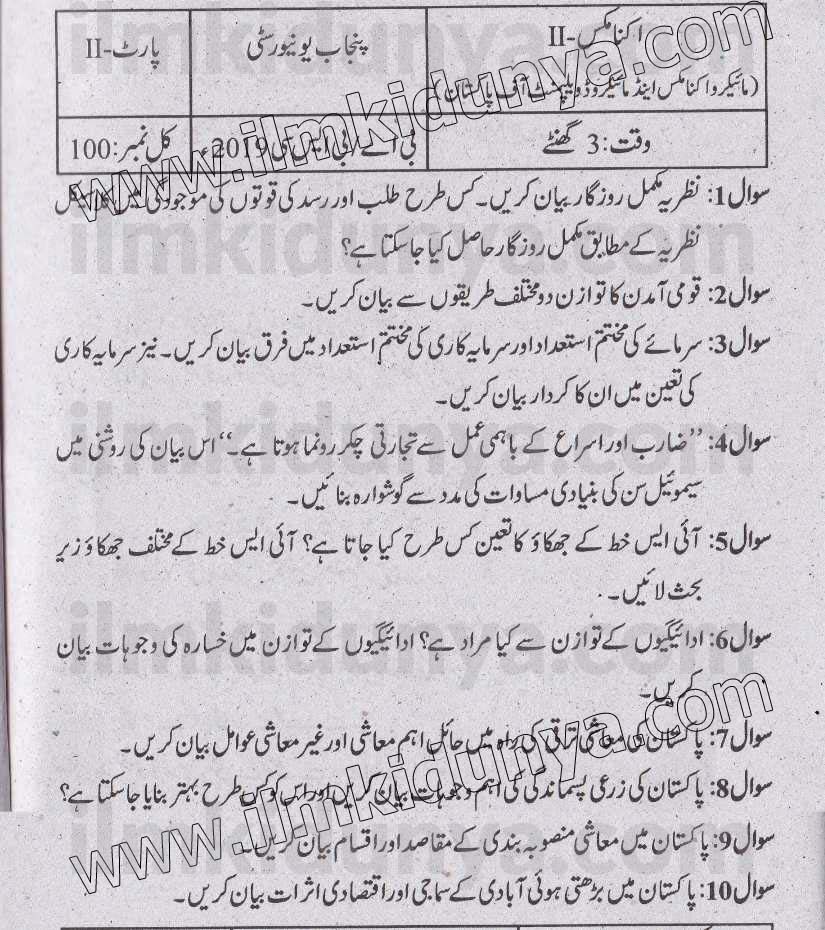 اکنامکس-II
پنجاب یونیورسٹی
پارٹ-II
(مائیکرو اکنامکس اینڈ مائیکرو ڈویلپمنٹ آف پاکستان)
وقت: 3 گھنٹے
بی اے/بی ایس سی 2019ء
کل نمبر: 100
سوال 1: نظریہ مکمل روزگار بیان کریں۔ کس طرح طلب اور رسد کی قوتوں کی موجودگی میں کلاسیکل
نظریہ کے مطابق مکمل روزگار حاصل کیا جاسکتا ہے؟
سوال 2: قومی آمدن کا توازن دو مختلف طریقوں سے بیان کریں۔
سوال 3: سرمائے کی مختتم استعداد اور سرمایہ کاری کی مختتم استعداد میں فرق بیان کریں۔ نیز سرمایہ کاری
کی تعین میں ان کا کردار بیان کریں۔
سوال 4: ’’ضارب اور اسراع کے باہمی عمل سے تجارتی چکر رونما ہوتا ہے۔‘‘ اس بیان کی روشنی میں
سیموئیل سن کی بنیادی مساوات کی مدد سے گوشوارہ بنائیں۔
سوال 5: آئی ایس خط کے جھکاؤ کا تعین کس طرح کیا جاتا ہے؟ آئی ایس خط کے مختلف جھکاؤ زیر
بحث لائیں۔
سوال 6: ادائیگیوں کے توازن سے کیا مراد ہے؟ ادائیگیوں کے توازن میں خسارہ کی وجوہات بیان
کریں۔
سوال 7: پاکستان کی معاشی ترقی کی راہ میں حائل اہم معاشی اور غیر معاشی عوامل بیان کریں۔
سوال 8: پاکستان کی زرعی پسماندگی کی اہم وجوہات بیان کریں اور اس کو کس طرح بہتر بنایا جاسکتا ہے؟
سوال 9: پاکستان میں معاشی منصوبہ بندی کے مقاصد اور اقسام بیان کریں۔
سوال 10: پاکستان میں بڑھتی ہوئی آبادی کے سماجی اور اقتصادی اثرات بیان کریں۔
www.ilmkidunya.com
www.ilmkidunya.com
ilmkidunya.com
ilmkidunya.com
ilmkidunya.com
ilmkidunya.com
ilmkidunya.com